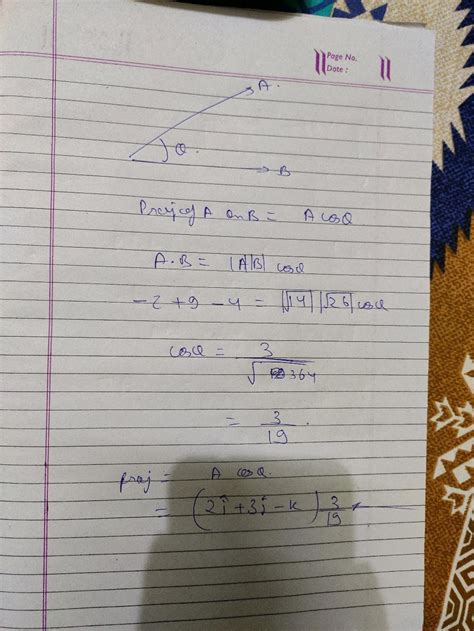 Page No.
Date :
A.
θ.
B
Proj of A on B = A cosθ
A·B = |A||B| cosθ
-2 + 9 - 4 = |√14| |√26| cosθ
cosθ = 3
√364
= 3
19 .
proj = A cosθ.
= (2î + 3ĵ - k) 3
19